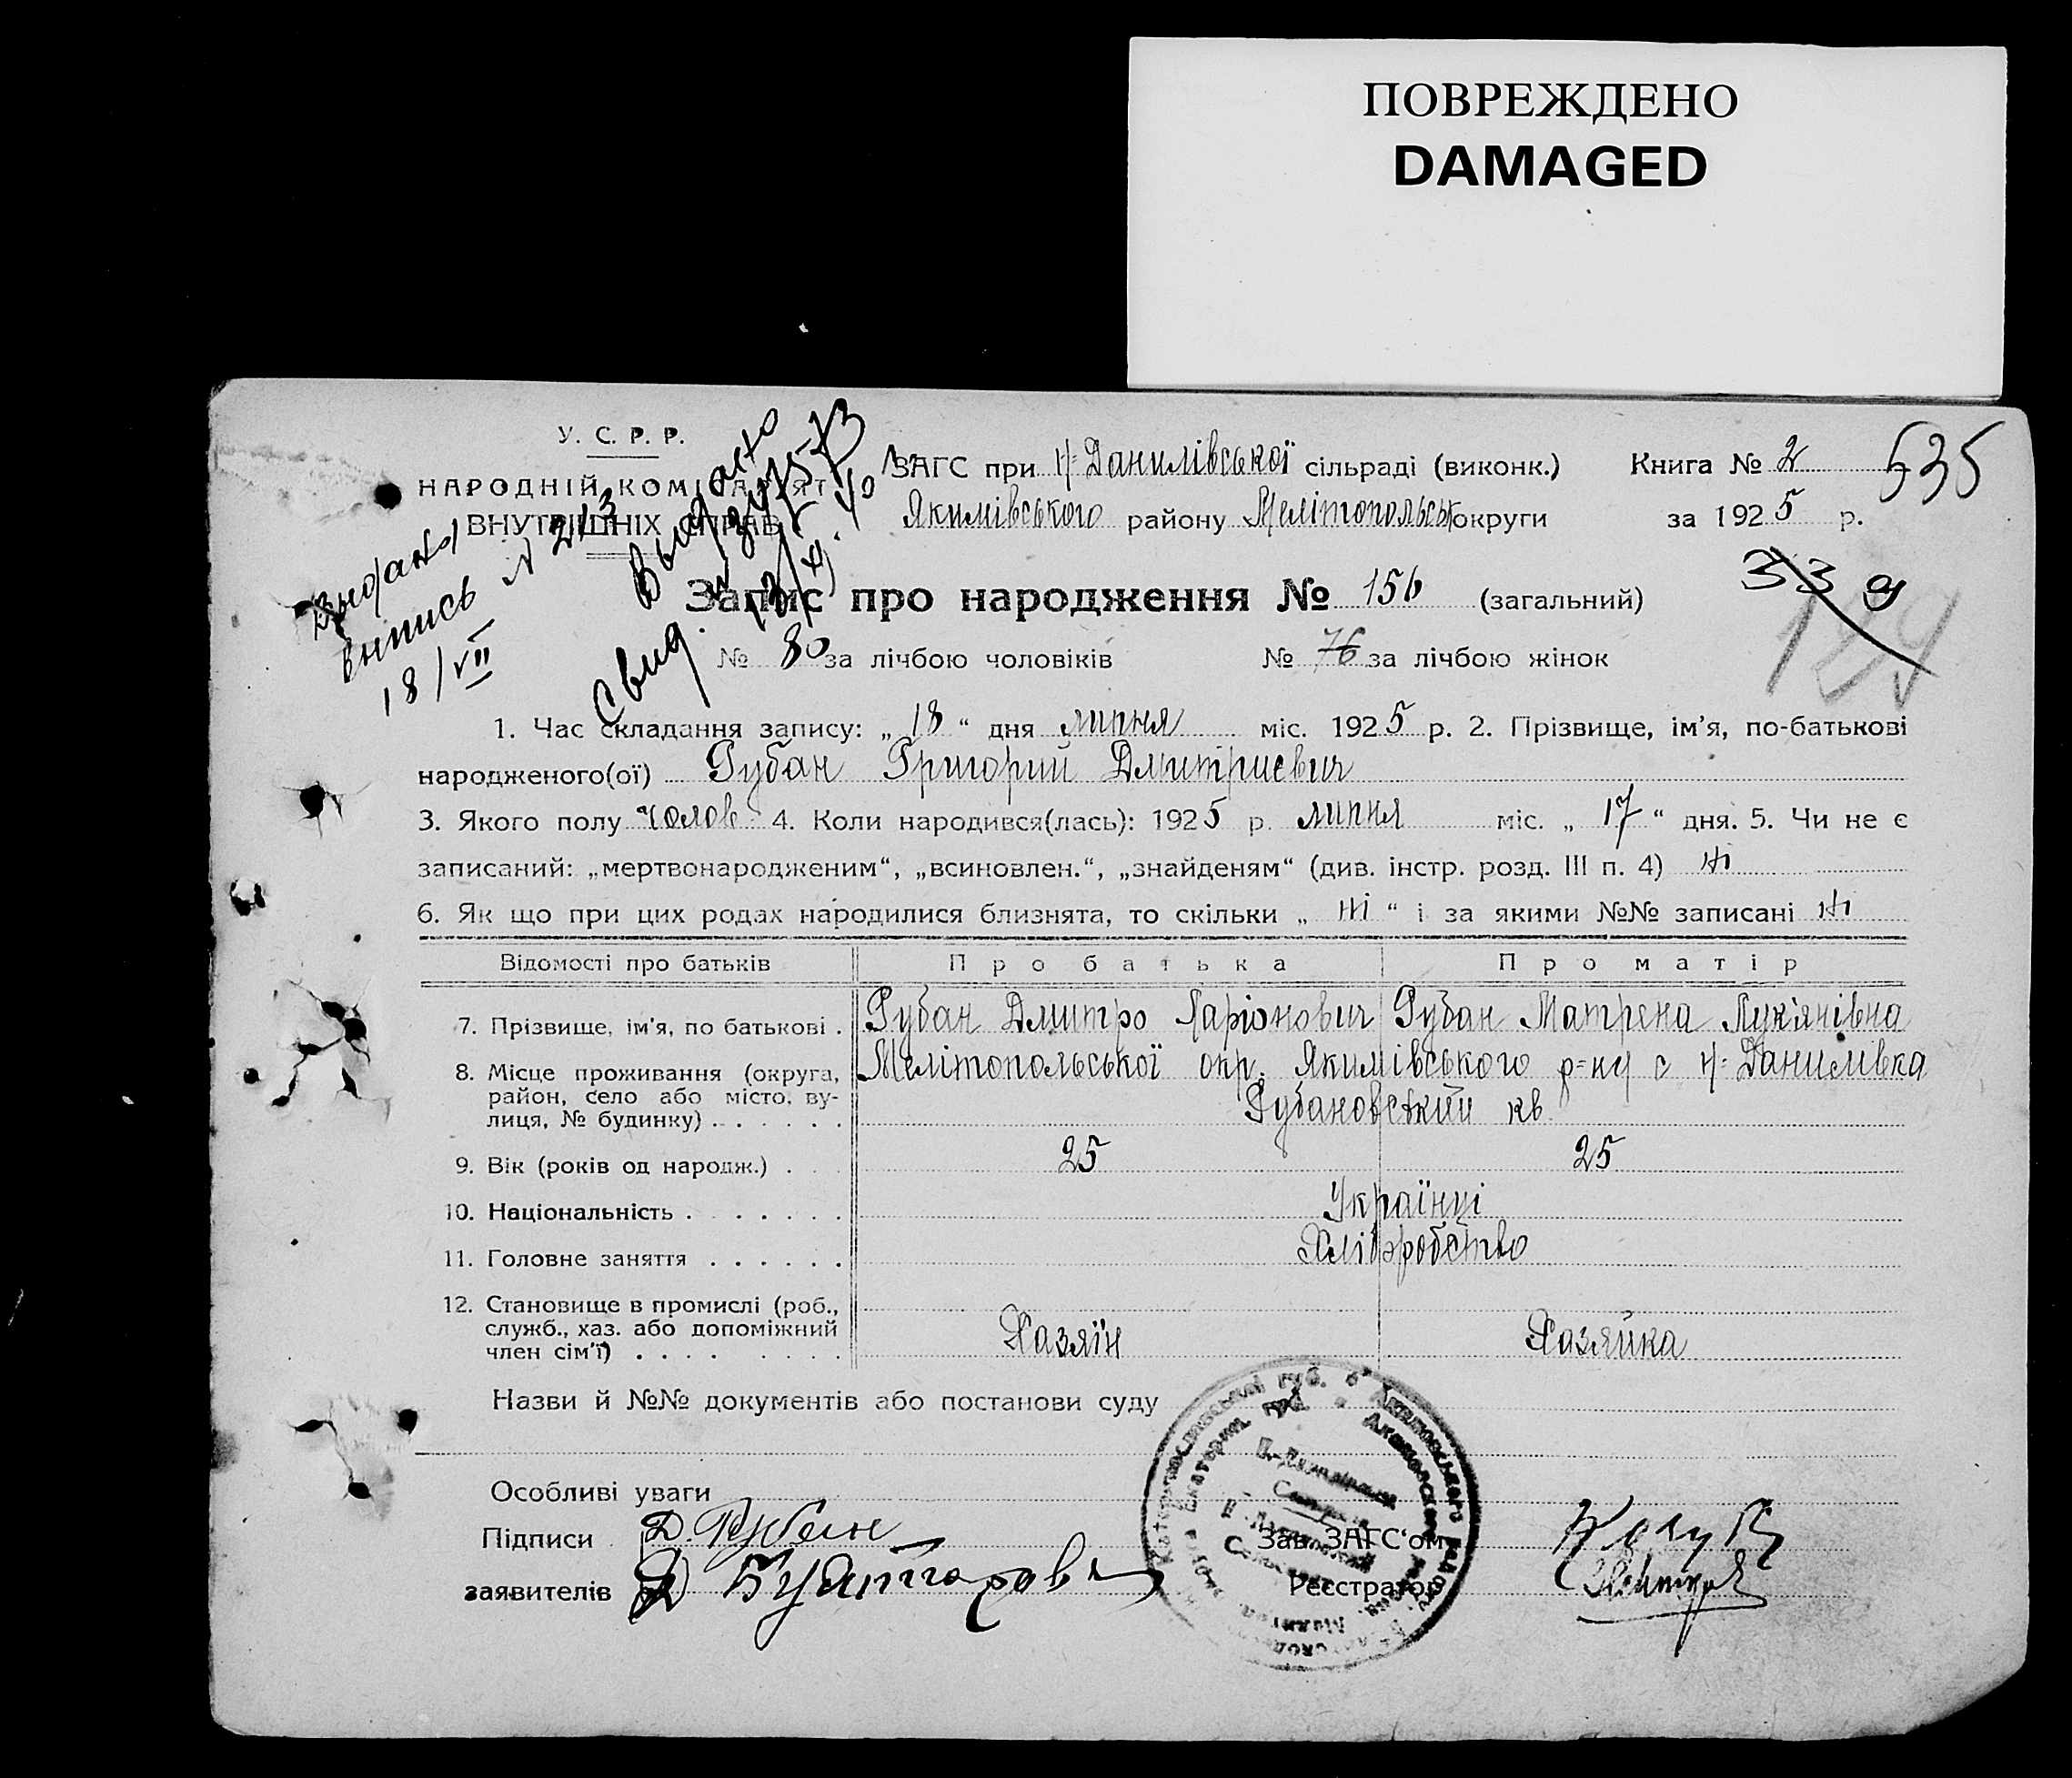 ПОВРЕЖДЕНО
DAMAGED
У. С. Р. Р.
НАРОДНІЙ КОМІСАРІЯТ
ВНУТРІШНІХ СПРАВ
ЗАГС при Н-Данилівської сільраді (виконк.) Книга № 2 535
Якимівського району Мелітопольськ округи за 1925 р.
339
выдано
выпись N 213
18/VII
Выдано
свид.
Запис про народження № 156 (загальний)
№ 80 за лічбою чоловіків № 76 за лічбою жінок
1. Час складання запису: „18“ дня липня міс. 1925 р. 2. Прізвище, ім’я, по-батькові
народженого(ої) Рубан Григорий Дмитриевич
3. Якого полу чолов 4. Коли народився(лась): 1925 р. липня міс. „17“ дня. 5. Чи не є
записаний: „мертвонародженим“, „всиновлен.“, „знайденям“ (див. інстр. розд. III п. 4) ні
6. Як що при цих родах народилися близнята, то скільки „ ні “ і за якими №№ записані ні
Відомості про батьків Про батька Про матір
7. Прізвище, ім’я, по батькові . Рубан Дмитро Ларіонович Рубан Матрена Лук'янівна
8. Місце проживання (округа, Мелітопольської окр. Якимівського р=ну с Н=Данилівка
район, село або місто, ву- Рубановський кв.
лиця, № будинку) . . . . . .
9. Вік (років од народж.) . 25 25
10. Національність . . . . . . . Українці
11. Головне заняття . . . . . . Хліборобство
12. Становище в промислі (роб.,
служб., хаз. або допоміжний Хазяїн Хазяйка
член сім’ї) . . . . . . . .
Назви й №№ документів або постанови суду
Особливі уваги
Підписи Д. Рубан Зав. ЗАГС‘ом
заявителів Реєстратор